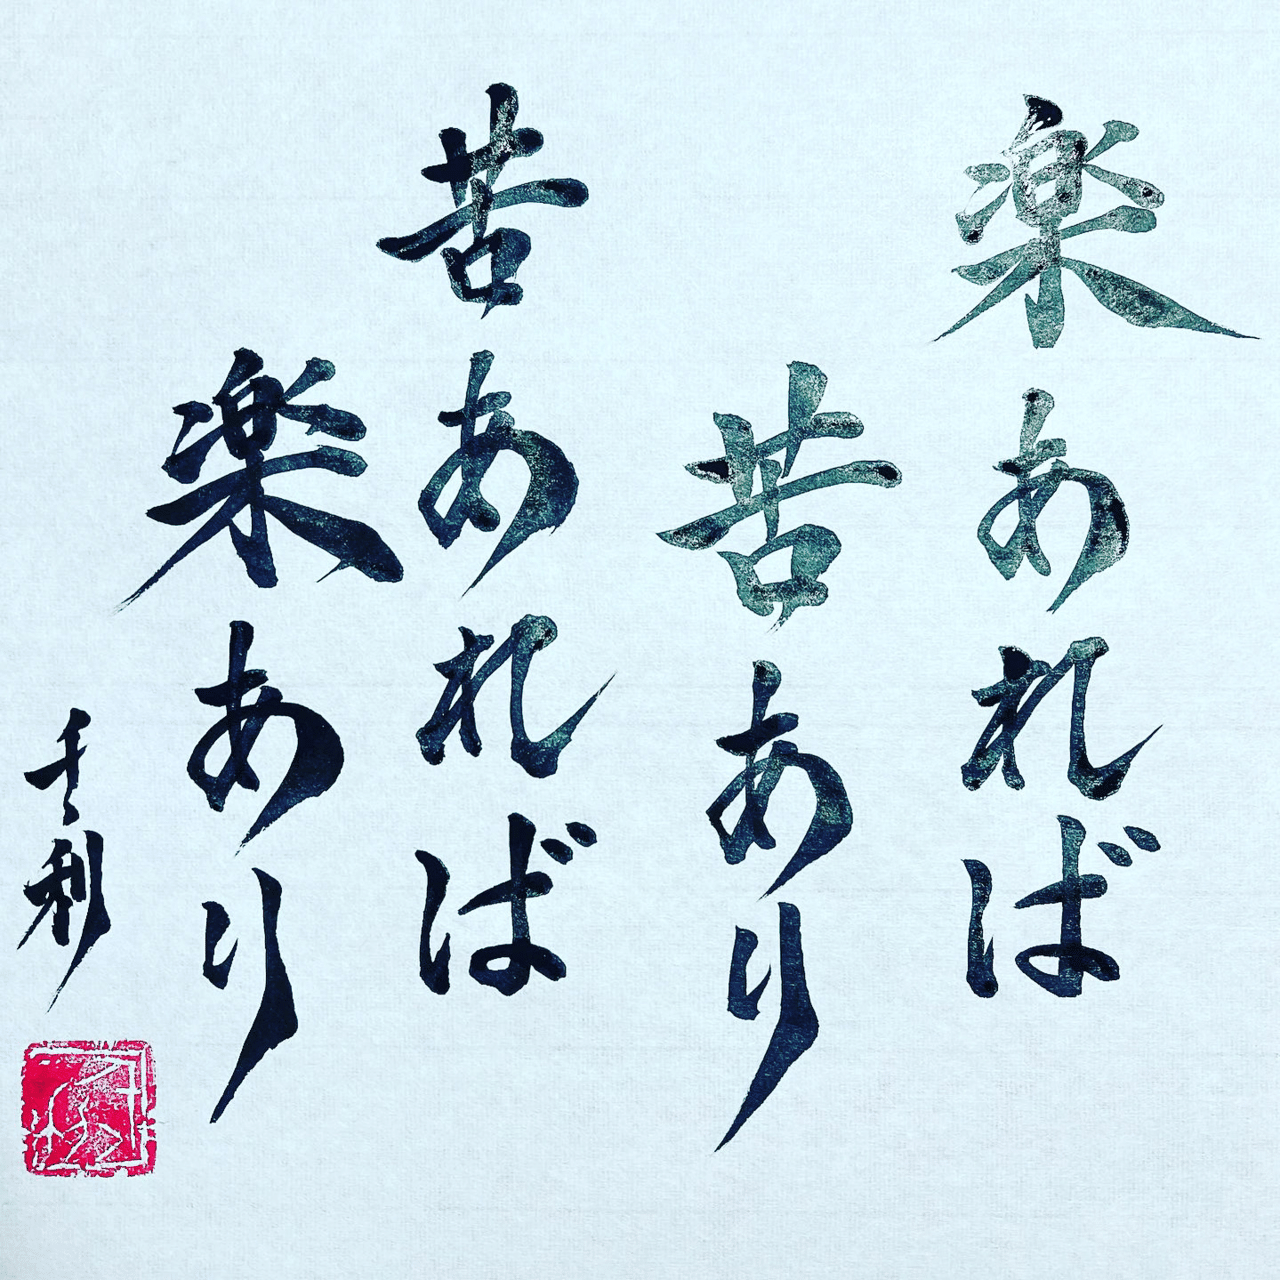 楽あれば
苦あり
苦あれば
楽あり
千利